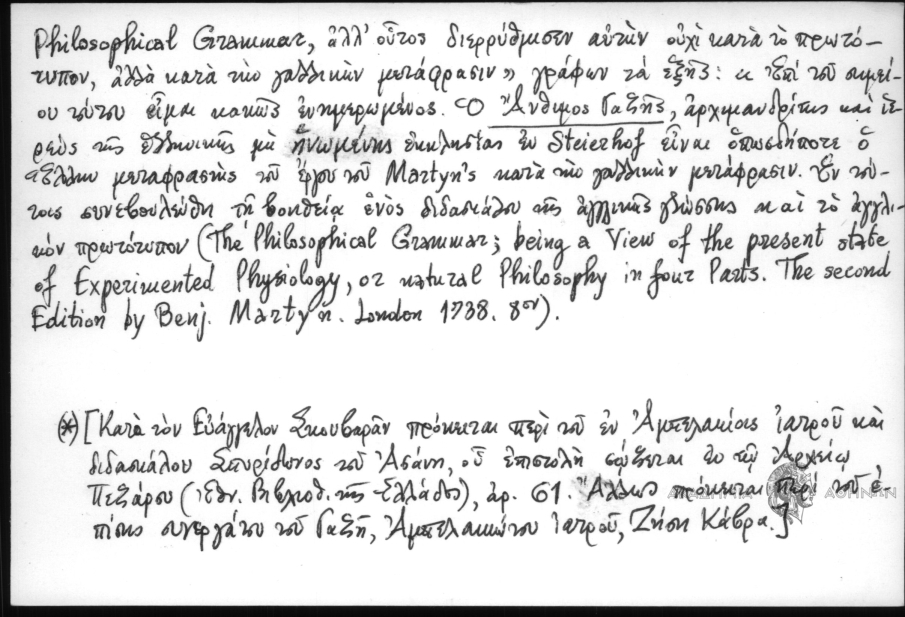 Philosophical Grammar, ἀλλ' οὗτος διερρύθμισεν αὐτὴν οὐχὶ κατὰ τὸ πρωτό-
τυπον, ἀλλὰ κατὰ τὴν γαλλικὴν μετάφρασιν» γράφων τὰ ἑξῆς: « Ἐπὶ τοῦ σημεί-
ου τούτου εἶμαι κακῶς ἐνημερωμένος. Ὁ Ἄνθιμος Γαζῆς, ἀρχιμανδρίτης καὶ ἱε-
ρεὺς τῆς ἑλληνικῆς μὴ ἡνωμένης ἐκκλησίας ἐν Steierhof εἶναι ὁπωσδήποτε ὁ
Ἕλλην μεταφραστὴς τοῦ ἔργου τοῦ Martyn's κατὰ τὴν γαλλικὴν μετάφρασιν. Ἐν τού-
τοις συνεβουλεύθη τῇ βοηθείᾳ ἑνὸς διδασκάλου τῆς ἀγγλικῆς γλώσσης καὶ τὸ ἀγγλι-
κὸν πρωτότυπον (The Philosophical Grammar; being a View of the present state
of Experimented Physiology, or natural Philosophy in four Parts. The second
Edition by Benj. Martyn. London 1738. 8ον).
(*) [Κατὰ τὸν Εὐάγγελον Σκουβαρᾶν πρόκειται περὶ τοῦ ἐν Ἀμπελακίοις ἰατροῦ καὶ
διδασκάλου Σπυρίδωνος τοῦ Ἀσάνη, οὗ ἐπιστολὴ σῴζεται ἐν τῷ Ἀρχείῳ
Πεζάρου (Ἐθν. Βιβλιοθ. τῆς Ἑλλάδος), ἀρ. 61. Ἄλλως πρόκειται περὶ τοῦ ἐ-
πίσης συνεργάτου τοῦ Γαζῆ, Ἀμπελακιώτου ἰατροῦ, Ζήση Κάβρα.]
ΑΚΑΔΗΜΙΑ ΑΘΗΝΩΝ